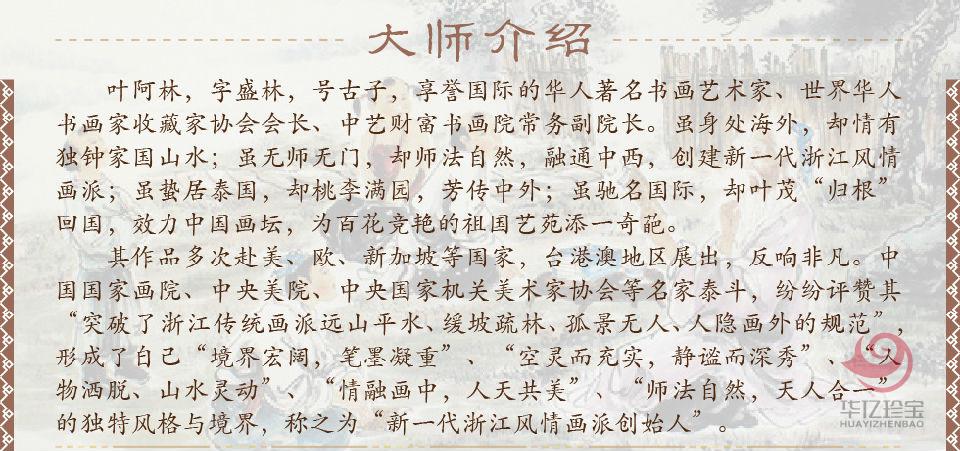 大师介绍
叶阿林，字盛林，号古子，享誉国际的华人著名书画艺术家、世界华人
书画家收藏家协会会长、中艺财富书画院常务副院长。虽身处海外，却情有
独钟家国山水；虽无师无门，却师法自然，融通中西，创建新一代浙江风情
画派；虽蛰居泰国，却桃李满园，芳传中外；虽驰名国际，却叶茂“归根”
回国，效力中国画坛，为百花竞艳的祖国艺苑添一奇葩。
其作品多次赴美、欧、新加坡等国家，台港澳地区展出，反响非凡。中
国国家画院、中央美院、中央国家机关美术家协会等名家泰斗，纷纷评赞其
“突破了浙江传统画派远山平水、缓坡疏林、孤景无人、人隐画外的规范”，
形成了自己“境界宏阔，笔墨凝重”、“空灵而充实，静谧而深秀”、“人
物洒脱、山水灵动”、“情融画中，人天共美”、“师法自然，天人合一”
的独特风格与境界，称之为“新一代浙江风情画派创始人”。
华亿珍宝
HUAYIZHENBAO